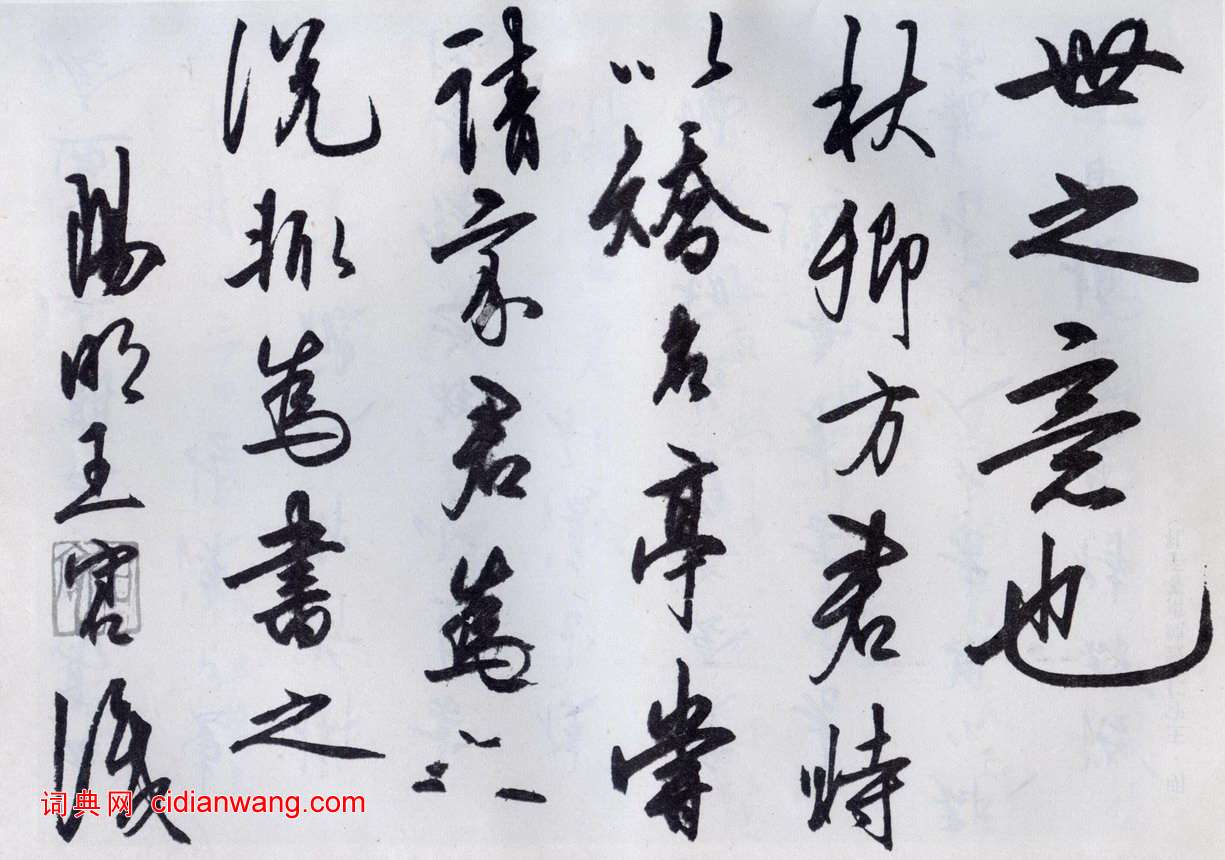 世之意也
秋卿方君時
以矯名亭嘗
請家君為之
說輒為書之
陽明王守仁識
词典网 cidianwang.com